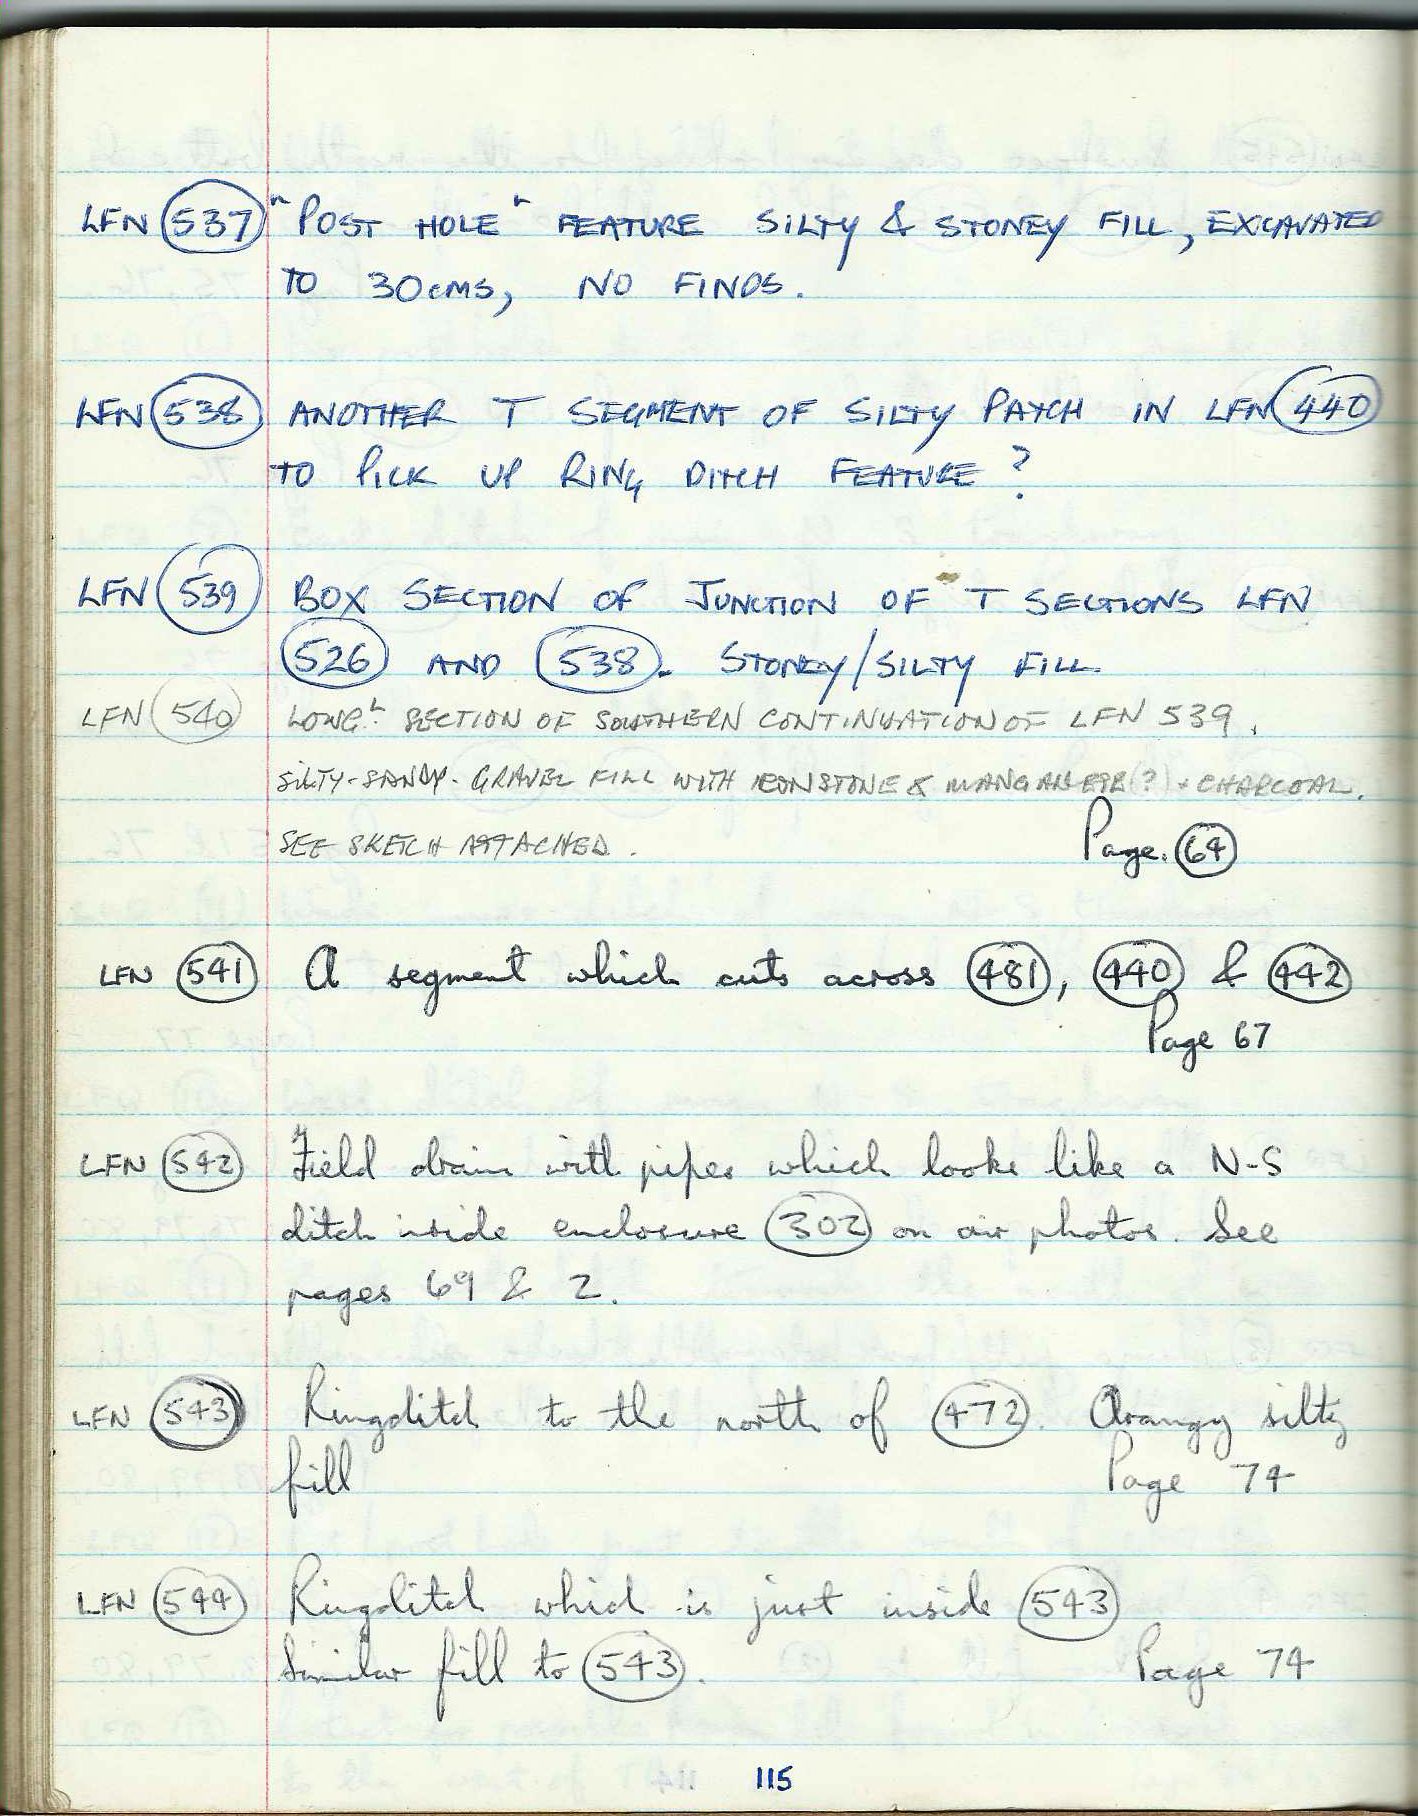 LFN 537 "POST HOLE" FEATURE SILTY & STONEY FILL, EXCAVATED
TO 30cms, NO FINDS.
LFN 538 ANOTHER T SEGMENT OF SILTY PATCH IN LFN 440
TO PICK UP RING DITCH FEATURE?
LFN 539 BOX SECTION OF JUNCTION OF T SECTIONS LFN
526 AND 538. STONEY/SILTY FILL.
LFN 540 LONG.L SECTION OF SOUTHERN CONTINUATION OF LFN 539.
SILTY-SANDY-GRAVEL FILL WITH IRONSTONE & MANGANESE(?) + CHARCOAL.
SEE SKETCH ATTACHED. Page. 64
LFN 541 A segment which cuts across 481, 440 & 442
Page 67
LFN 542 Field drain with pipes which looks like a N-S
ditch inside enclosure 302 on air photos. See
pages 69 & 2.
LFN 543 Ringditch to the north of 472. Orangy silty
fill Page 74
LFN 544 Ringditch which is just inside 543
Similar fill to 543. Page 74
115